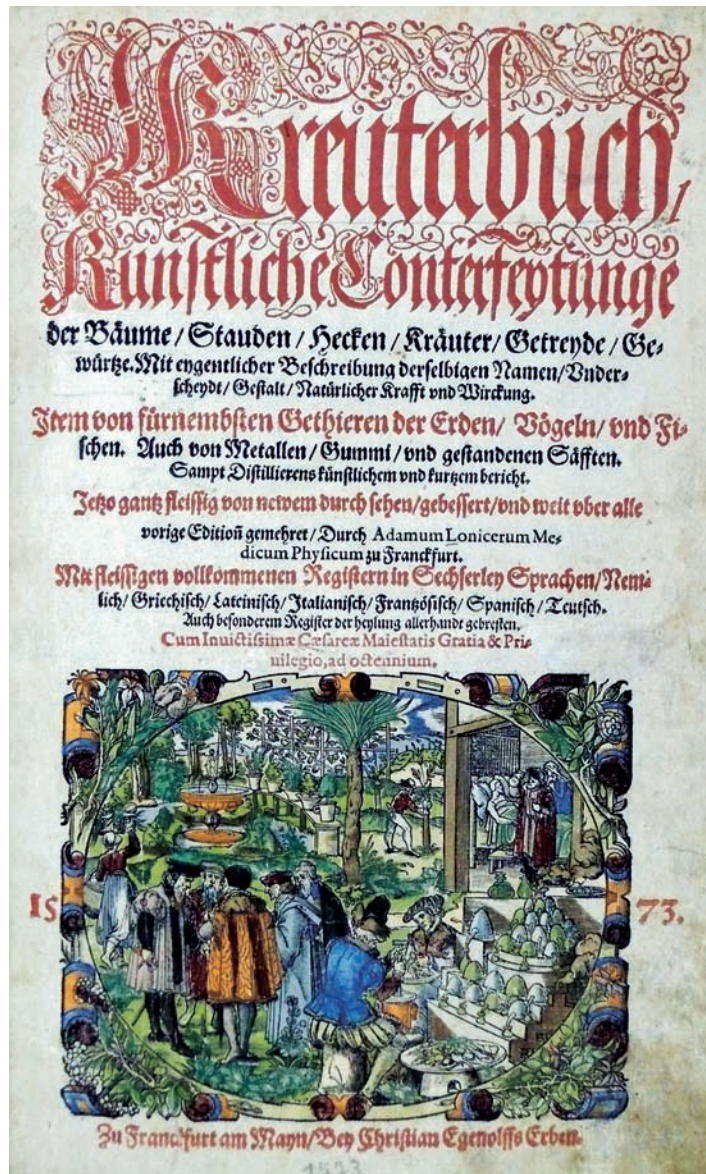 Kreuterbuch/
Kunstliche Conterfeytunge
der Bäume/ Stauden/ Hecken/ Kräuter/ Getreyde/ Ge-
würtze. Mit eygentlicher Beschreibung derselbigen Namen/ Vnder-
scheydt/ Gestalt/ Natürlicher Krafft vnd Wirckung.
Item von fürnembsten Gethieren der Erden/ Vögeln/ vnd Fi-
schen. Auch von Metallen/ Gummi/ vnd gestandenen Säfften.
Sampt Distillierens künstlichem vnd kurtzem bericht.
Jetzo gantz fleissig von newem durch sehen/ gebessert/ vnd weit vber alle
vorige Edition̄ gemehret/ Durch Adamum Lonicerum Me-
dicum Physicum zu Franckfurt.
Mit fleissigen vollkommenen Registern in Sechserley Sprachen/ Nem-
lich/ Griechisch/ Lateinisch/ Italianisch/ Frantzösisch/ Spanisch/ Teutsch.
Auch besonderem Register der heylung allerhandt gebresten.
Cum Inuictissimæ Cæsareæ Maiestatis Gratia & Pri-
uilegio, ad octennium.
15 73.
Zu Franckfurt am Mayn/ Bey Christian Egenolffs Erben.
1573